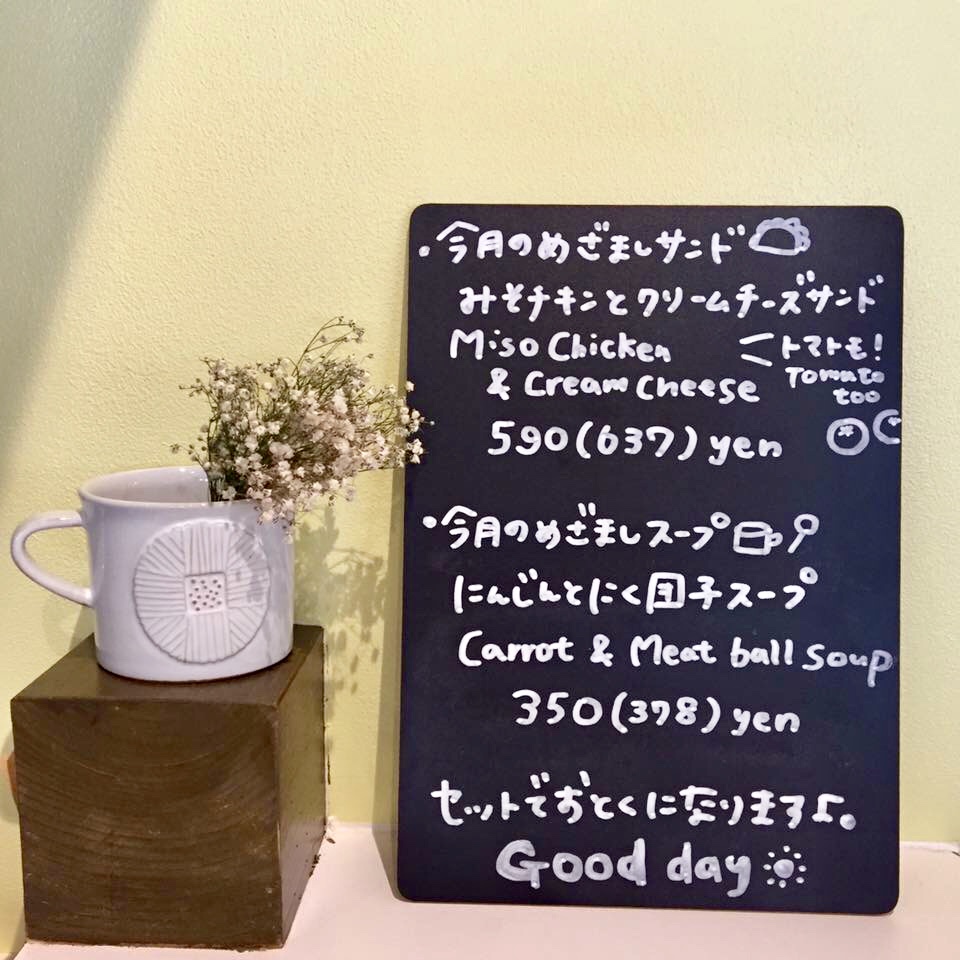 ・今月のめざましサンド
みそチキンとクリームチーズサンド
Miso Chicken
& Cream Cheese
トマトも!
Tomato
too
590(637)yen
・今月のめざましスープ
にんじんとにく団子スープ
Carrot & Meat ball Soup
350(378)yen
セットでおとくになります♪。
Good day